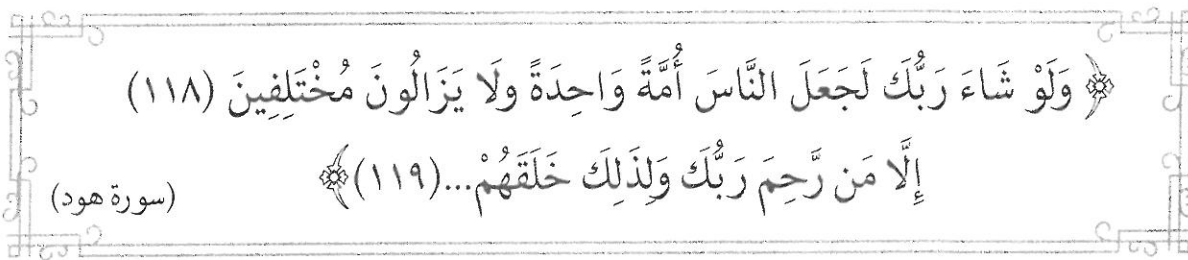 ﴿ وَلَوْ شَاءَ رَبُّكَ لَجَعَلَ النَّاسَ أُمَّةً وَاحِدَةً ولَا يَزَالُونَ مُخْتَلِفِينَ (١١٨)
إِلَّا مَن رَّحِمَ رَبُّكَ وَلِذَلِكَ خَلَقَهُمْ...(١١٩)﴾
(سورة هود)